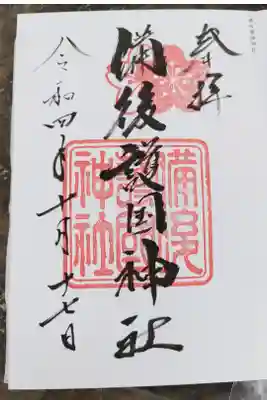 奉拝
備後護国神社
令和四年十月十七日
備後
護国
神社